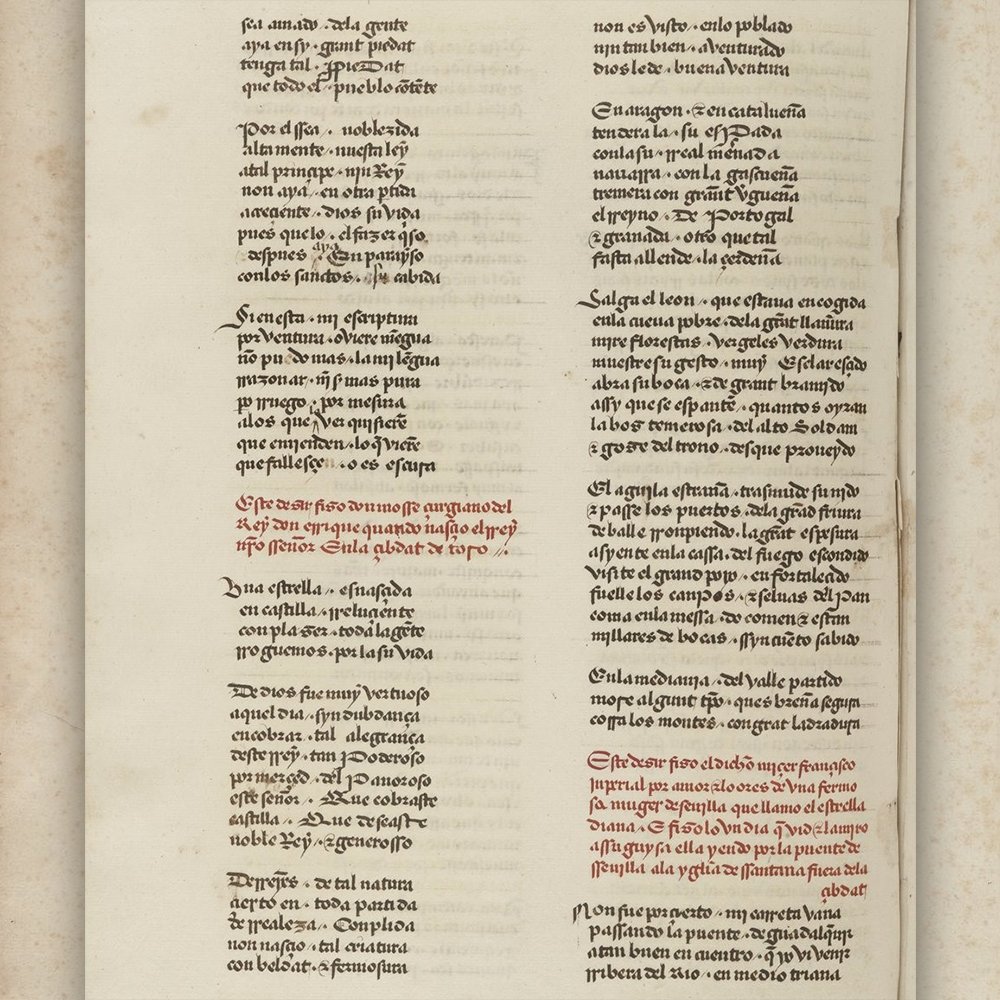 sea amado · dela gente
aya en sy · grant piedat
tenga tal · ppiedat
que todo el · pueblo cōtēte
Por el ssea · noblezida
altamente · nuestra ley
atal prinçipe · nin Rey
non aya · en otra ptida
acreçiente · dios su vida
pues que lo · el fazer qso
despues aya En parayso
con los sanctos · su cabida
Si en esta · mi escriptura
por ventura · oviere mēgua
nō pudo mas · la mi lēgua
rrazonar · nī s mas pura
po rruego · por mesura
alos que ver quisierē
que emienden · lo q̄ vierē
que fallesçe · o es escura
Este desir fiso don mosse çurgiano del
Rey don enrrique quando nasçio el rrey
nr̄o señor En la çibdat de toro
Vna estrella · es nasçida
en castilla · rreluciente
con plaser · toda la gēte
rroguemos · por la su vida
De dios fue muy vertuoso
aquel dia · syn dubdança
en cobrar · tal alegrança
deste rrey · tan Poderoso
por merçed · del Panoroso
este señor · Que cobraste
castilla · Que deseaste
noble Rey · & generosso
De rreyes · de tal natura
açerto en · toda partida
de rrealeza · Conplida
non nasçio · tal criatura
con beldat · & fermosura
non es visto · en lo poblado
nin tan bien · aventurado
dios le de · buena ventura
En aragon · & en catalueña
tendera la · su esPada
con la su · rreal mēnada
navarra · con la gascueña
tremera con grānt v̄gueña
el rreyno · De Portogal
& granada · otro que tal
fasta allende · la çerdeña
Salga el leon · que estava encogida
en la cueva pobre · dela grāt llanura
mire florestas · vergeles verdura
muestre su gesto · muy Esclaresçido
abra su boca · & de grant bramido
assy que se espantē · quantos oyran
la bos temerosa · del alto Soldan
& gose del trono · desque proueydo
El aguila estraña · trasmude su nido
& passe los puertos · dela grād friura
de balle rronpiendo · la grāt espesura
asyente en la cassa · del fuego escondido
visite el grand poyo · enfortalecido
fuelle los canpos · & seluas del Pan
coma en la messa · do comen & estan
millares de bocas · syn cuēto sabido
En la mediania · del valle partido
more algunt tp̄o · ques breña segura
corra los montes · con grat ladradura
Este desir fiso el dicho miçer françisco
Inperial por amor & loores de vna fermo
sa muger de seuilla que llamo el estrella
diana · E fisolo vn dia q̄ vid & la miro
assu guysa ella yendo por la puente de
sseuilla ala yglīa de ssantana fuera dela
çibdat
Non fue por çierto · mi carrera vana
passando la puente · de guadalquir
atan buen encuentro · q̄ yo vi venir
rribera del Rio · en medio triana